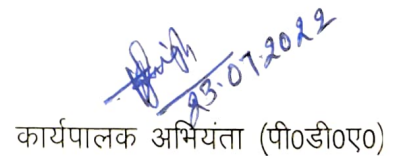 23.07.2022
कार्यपालक अभियंता (पी0डी0ए0)